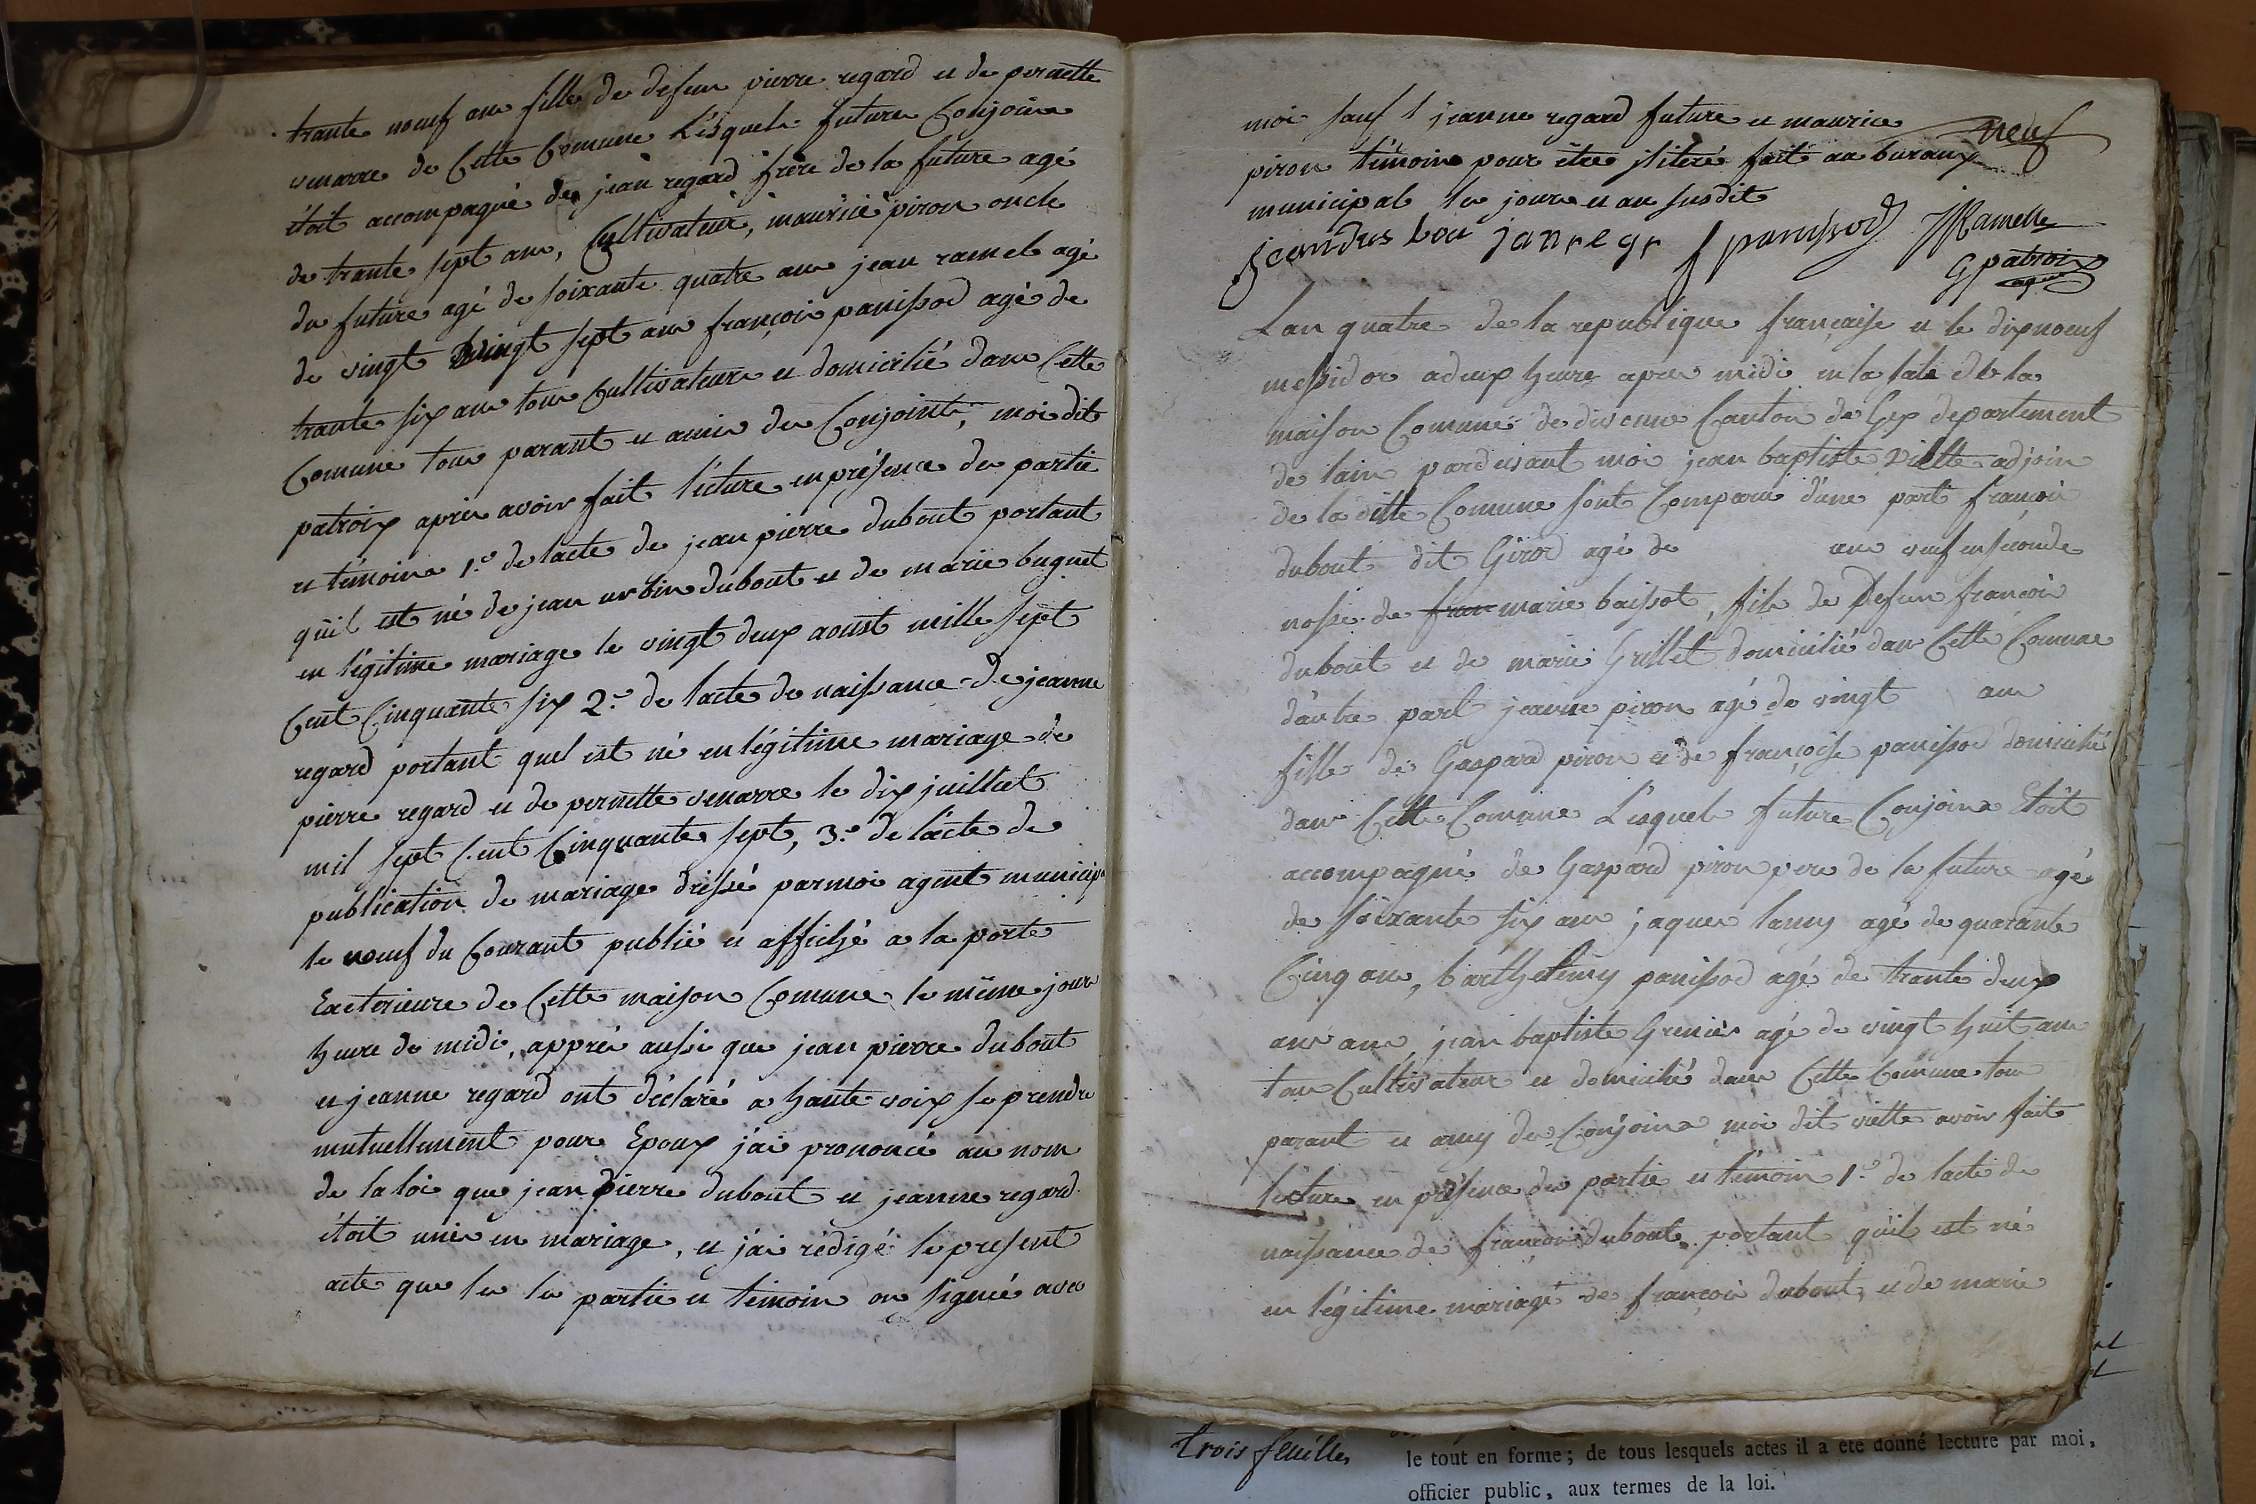 trante neuf ans fille de defun pierre regard et de pernette
venarre de Cette Comune Lésquels future Conjoins
étoit accompagné de jean regard frère de la future agé
de trante sept ans, Cultivateur, maurice piron oncle
du future agé de soixante quatre ans jean ramel agé
de vingt vingt sept ans françois panissod agé de
trante six ans tous Cultivateurs et domicilié dans Cette
Comune tous parant et amis des Conjoints, moi dit
patroix après avoir fait lécture en présence des partie
et témoins 1.° de lacte de jean pierre dubout portant
quil est né de jean urbin dubout et de marie buguet
en légitime mariage le vingt deux aoust mille sept
Cent Cinquante six 2.° de lacte de naissance de jeanne
regard portant quel est né en légitime mariage de
pierre regard et de pernette venarre le dix juilliet
mil sept Cent Cinquante sept, 3.° de lácte de
publication de mariage dréssé par moi agent municip
le neuf du Courant publié et affiché a la porte
Exterieure de Cette maison Comune le même jour
heure de midi, appré aussi que jean pierre dubout
et jeanne regard ont déclaré a haute voix se prendre
mutuellement pour Epoux j'ai prononcé au nom
de la loi que jean pierre dubout et jeanne regard
étoit unis en mariage, et j'ai rédigé le present
acte que les les partie et témoin on signié avec
moi sauf 1 jeanne regard future et maurice
neuf
piron témoins pour être jliteré fait au buraux
municipal les jours et an susdit
jeandus bou janregr f panissod JRamelle
G patroix
Lan quatre de la republique française et le dixneuf
messidor a deux heure apres midi en la sale de la
maison Comune de divonne Canton de Gex departement
de lain pardevant moi jean baptiste Viette adjoin
de la ditte Comune sont Comparu d'une part françois
dubout dit Girod agé de ans veuf en séconde
nosse de fran marie baissot, fils de Defun françois
dubout et de marie Grillet domicilié dans Cette Comune
d'autre part jeanne piron agé de vingt ans
fille de Gaspard piron et de françoise panissod domicilié
dans Cette Comune Lésquels future Conjoins Etoit
accompagné de Gaspard piron pere de la future agé
de soixante six ans jaques lamy agé de quarante
Cinq ans, barthelémy panissod agé de trante deux
ans ans jean baptiste Grenier agé de vingt huit ans
tous Cultivateur et domicilié dans Cette Comune tous
parant et amy des Conjoins moi dit viette avoir fait
lecture en présence des partie et témoin 1.° de lacte de
naissance de françois dubout portant quil est né
en légitime mariage de françois dubout et de marie
trois feuilles
le tout en forme ; de tous lesquels actes il a été donné lecture par moi,
officier public, aux termes de la loi.